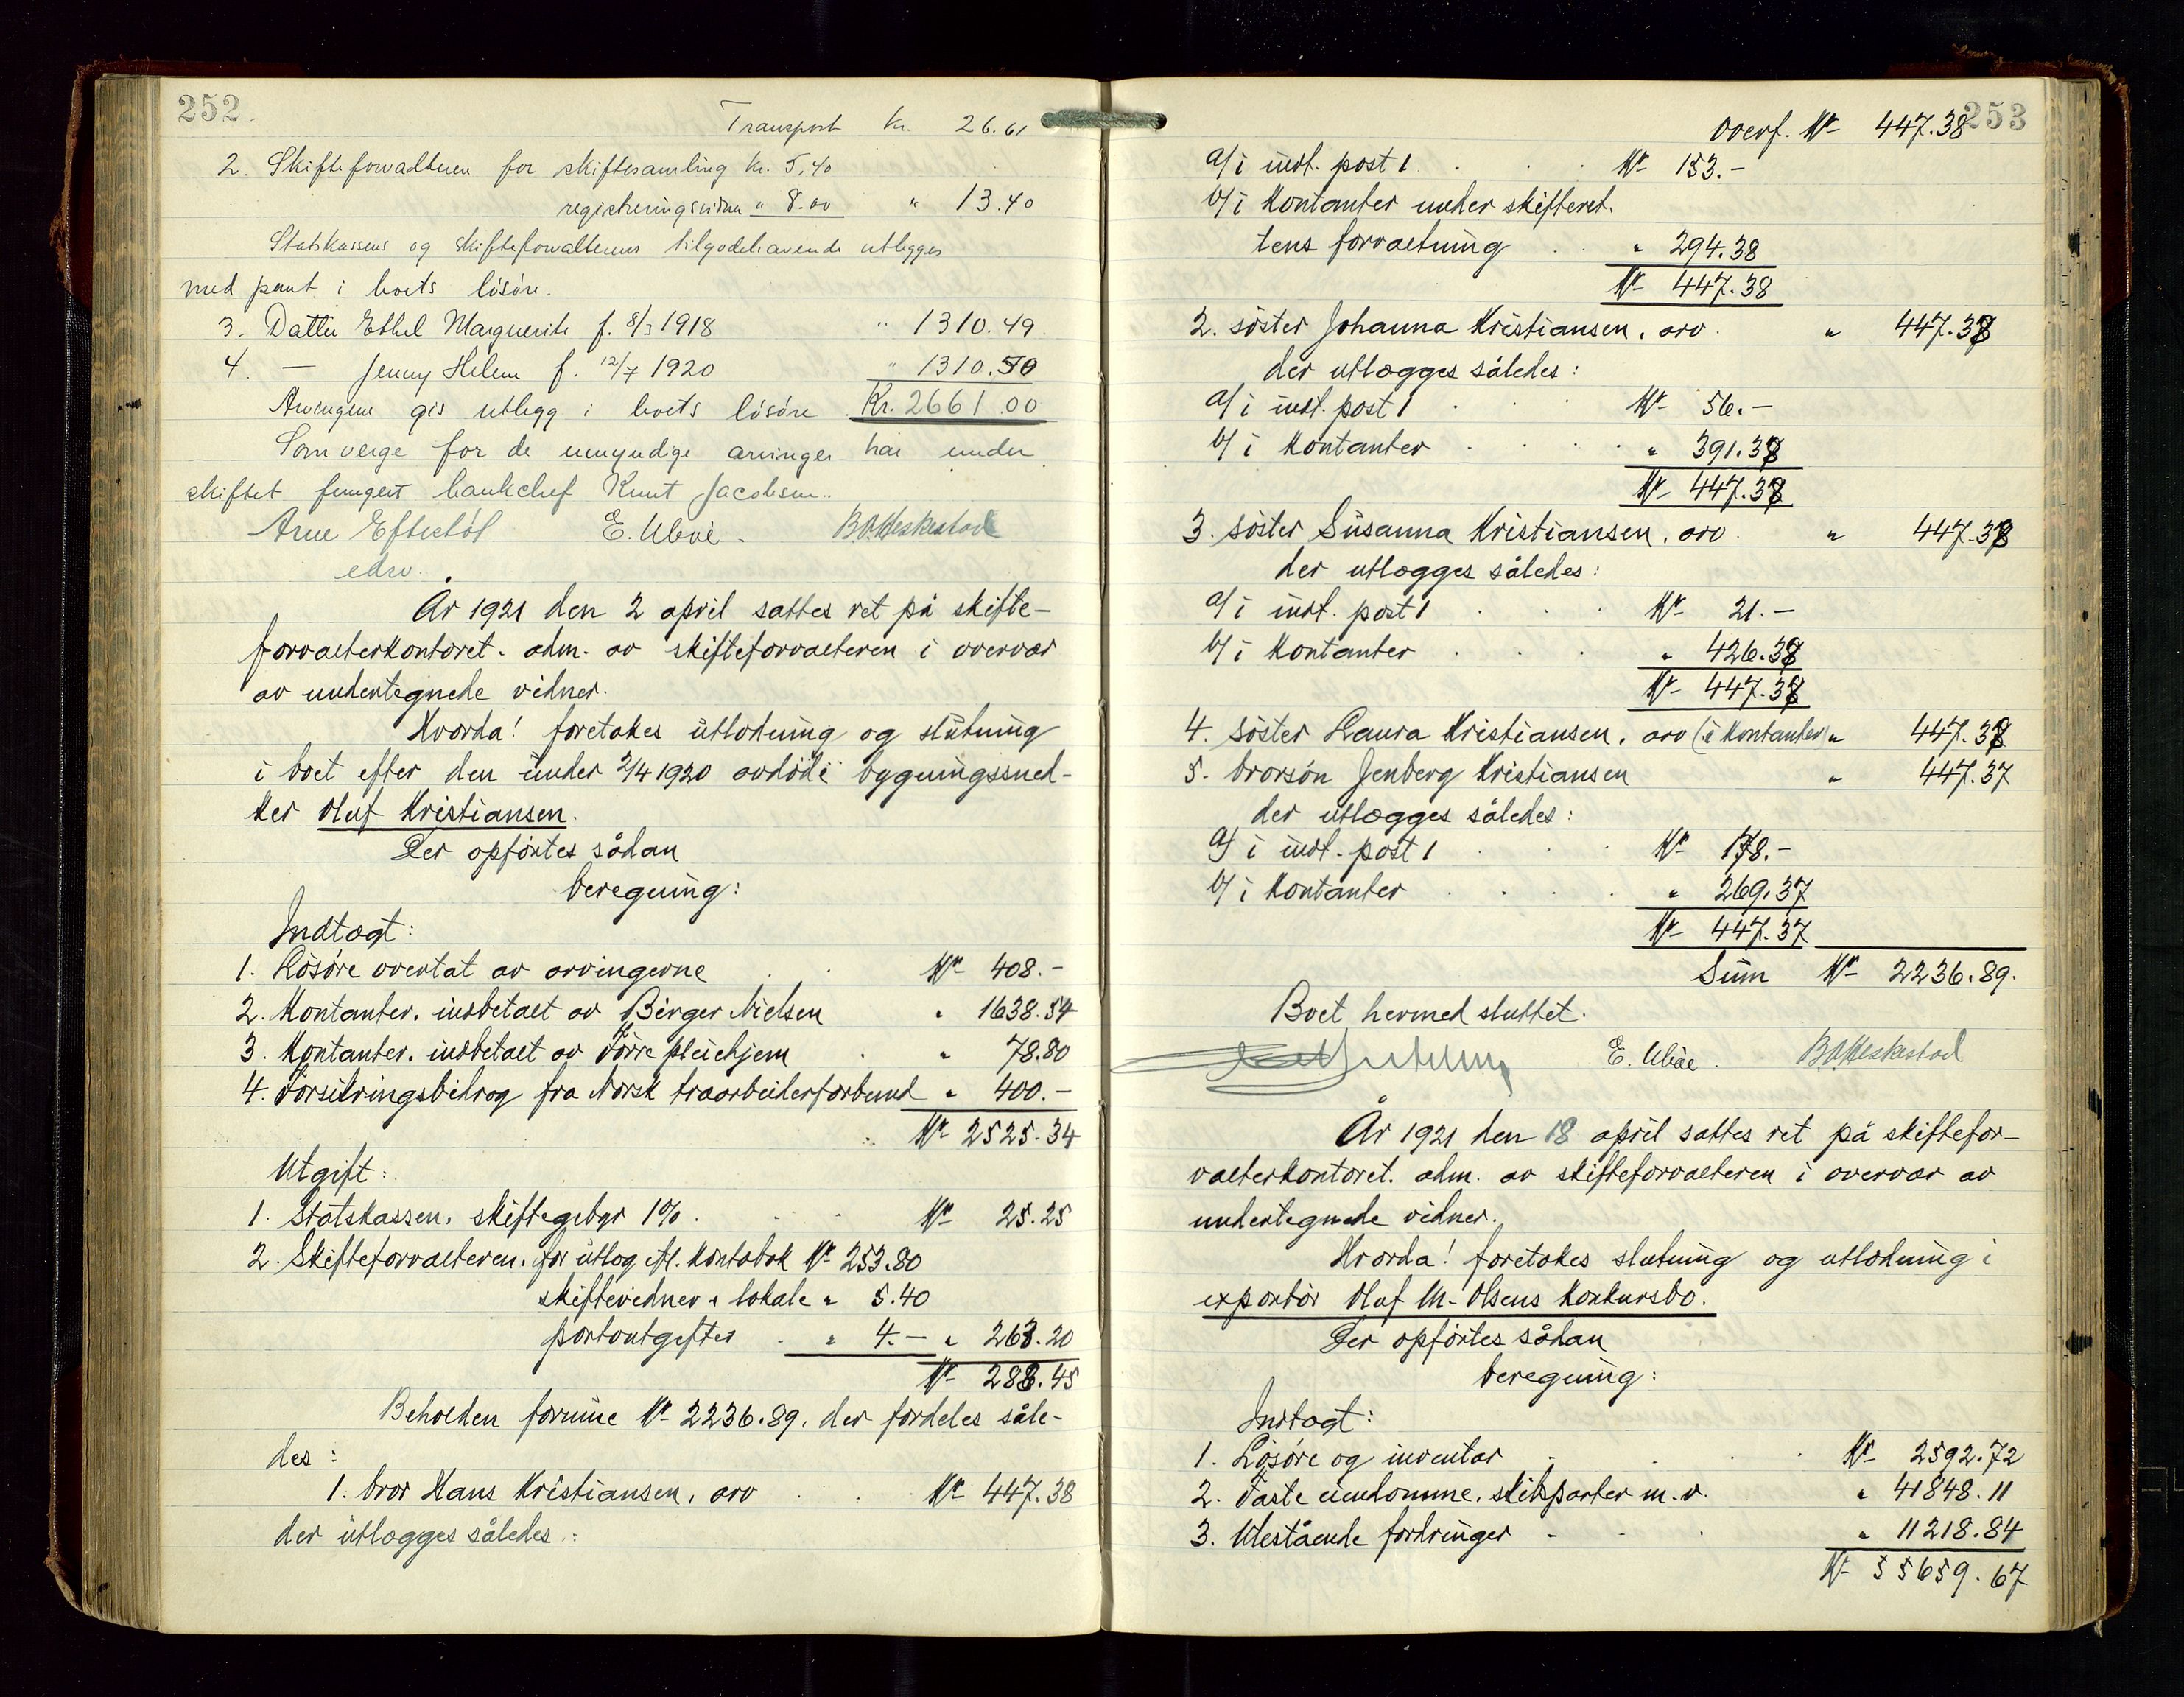 252.
Transport Kr. 26.61
2. Skifteforvalteren for skiftesamling Kr. 5,40
registreringsvidner " 8.00 " 13.40
Statskassens og skifteforvalterens tilgodehavende utlegges
med pant i boets lösöre.
3. Datter Ethel Marguerite f. 8/3 1918 " 1310.49
4. — Jenny Helene f. 12/7 1920 " 1310.50
Arvingene gis utlegg i boets lösöre Kr. 2661.00
Som verge for de umyndige arvinger har under
skiftet fungert bankchef Knut Jacobsen.
Arne Eftestöl E. Ubøe. B.O. Heskestad
edsv.
År 1921 den 2 april sattes ret på skifte-
forvalterkontoret. adm. av skifteforvalteren i overvær
av undertegnede vidner.
Hvorda! foretokes utlodning og slutning
i boet efter den under 2/4 1920 avdöde bygningssned-
ker Oluf Kristiansen.
Der opförtes sådan
beregning:
Indtægt:
1. Lösöre overtat av arvingerne Kr 408.-
2. Kontanter. indbetalt av Birger Nielsen " 1638.54
3. Kontanter. indbetalt av Förre pleiehjem " 78.80
4. Forsikringsbidrag fra Norsk træarbeiderforbund " 400.-
Kr 2525.34
Utgift:
1. Statskassen. skiftegebyr 1% Kr 25.25
2. Skifteforvalteren. for utlæg efl. kontobok Kr 253.80
skiftevidner & lokale " 5.40
portoutgifter " 4.- " 263.20
Kr 288.45
Beholden formue Kr 2236.89. der fordeles såle-
des:
1. bror Hans Kristiansen. arv Kr 447.38
der utlægges således:
253
Overf. Kr 447.38
a/ i indt. post 1 Kr 153.-
b/ i kontanter under skifteret-
tens forvaltning " 294.38
Kr 447.38
2. söster Johanna Kristiansen. arv " 447.38
der utlægges således:
a/ i indt. post 1 Kr 56.-
b/ i kontanter " 391.38
Kr 447.38
3. söster Susanna Kristiansen. arv " 447.38
der utlægges således:
a/ i indt. post 1 Kr 21.-
b/ i kontanter " 426.38
Kr 447.38
4. söster Laura Kristiansen. arv (i kontanter) " 447.38
5. brorsön Jenberg Kristiansen " 447.37
der utlægges således:
a/ i indt. post 1 Kr 178.-
b/ i kontanter " 269.37
Kr 447.37
Sum Kr 2236.89.
Boet hermed sluttet.
E. Ubøe. B.O. Heskestad
År 1921 den 18 april sattes ret på skiftefor-
valterkontoret. adm. av skifteforvalteren i overvær av
undertegnede vidner.
Hvorda! foretokes slutning og utlodning i
exportör Oluf M. Olsens konkursbo.
Der opförtes sådan
beregning:
Indtægt:
1. Lösöre og inventar Kr 2592.72
2. Faste eiendomme. skibsparter m.v. " 41848.11
3. Utestående fordringer " 11218.84
Kr 55659.67